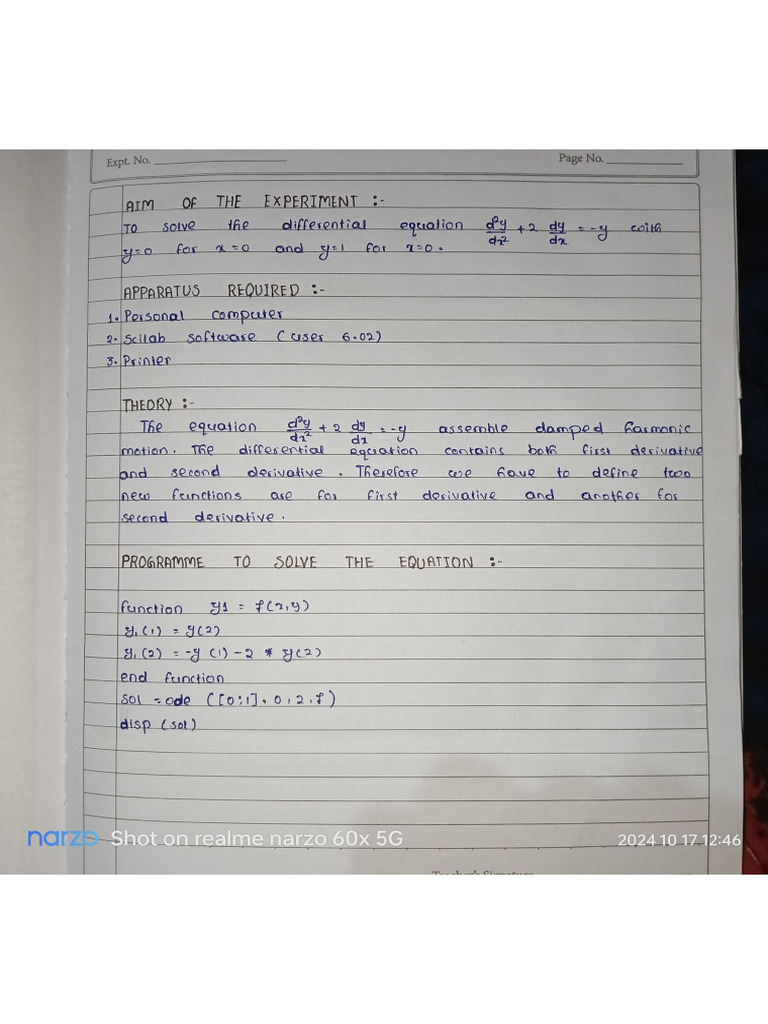 Expt. No.
Page No.
AIM OF THE EXPERIMENT :-
To solve the differential equation d²y/dx² + 2 dy/dx = -y with
y=0 for x=0 and y=1 for x=0.
APPARATUS REQUIRED :-
1. Personal computer
2. Scilab software (user 6.02)
3. Printer
THEORY :-
The equation d²y/dx² + 2 dy/dx = -y assemble damped harmonic
motion. The differential equation contains both first derivative
and second derivative. Therefore we have to define two
new functions are for first derivative and another for
second derivative.
PROGRAMME TO SOLVE THE EQUATION :-
function y1 = f(x,y)
y1(1) = y(2)
y1(2) = -y(1)-2 * y(2)
end function
sol = ode ([0;1],0,2,f)
disp (sol)
narzo Shot on realme narzo 60x 5G
2024 10 17 12:46